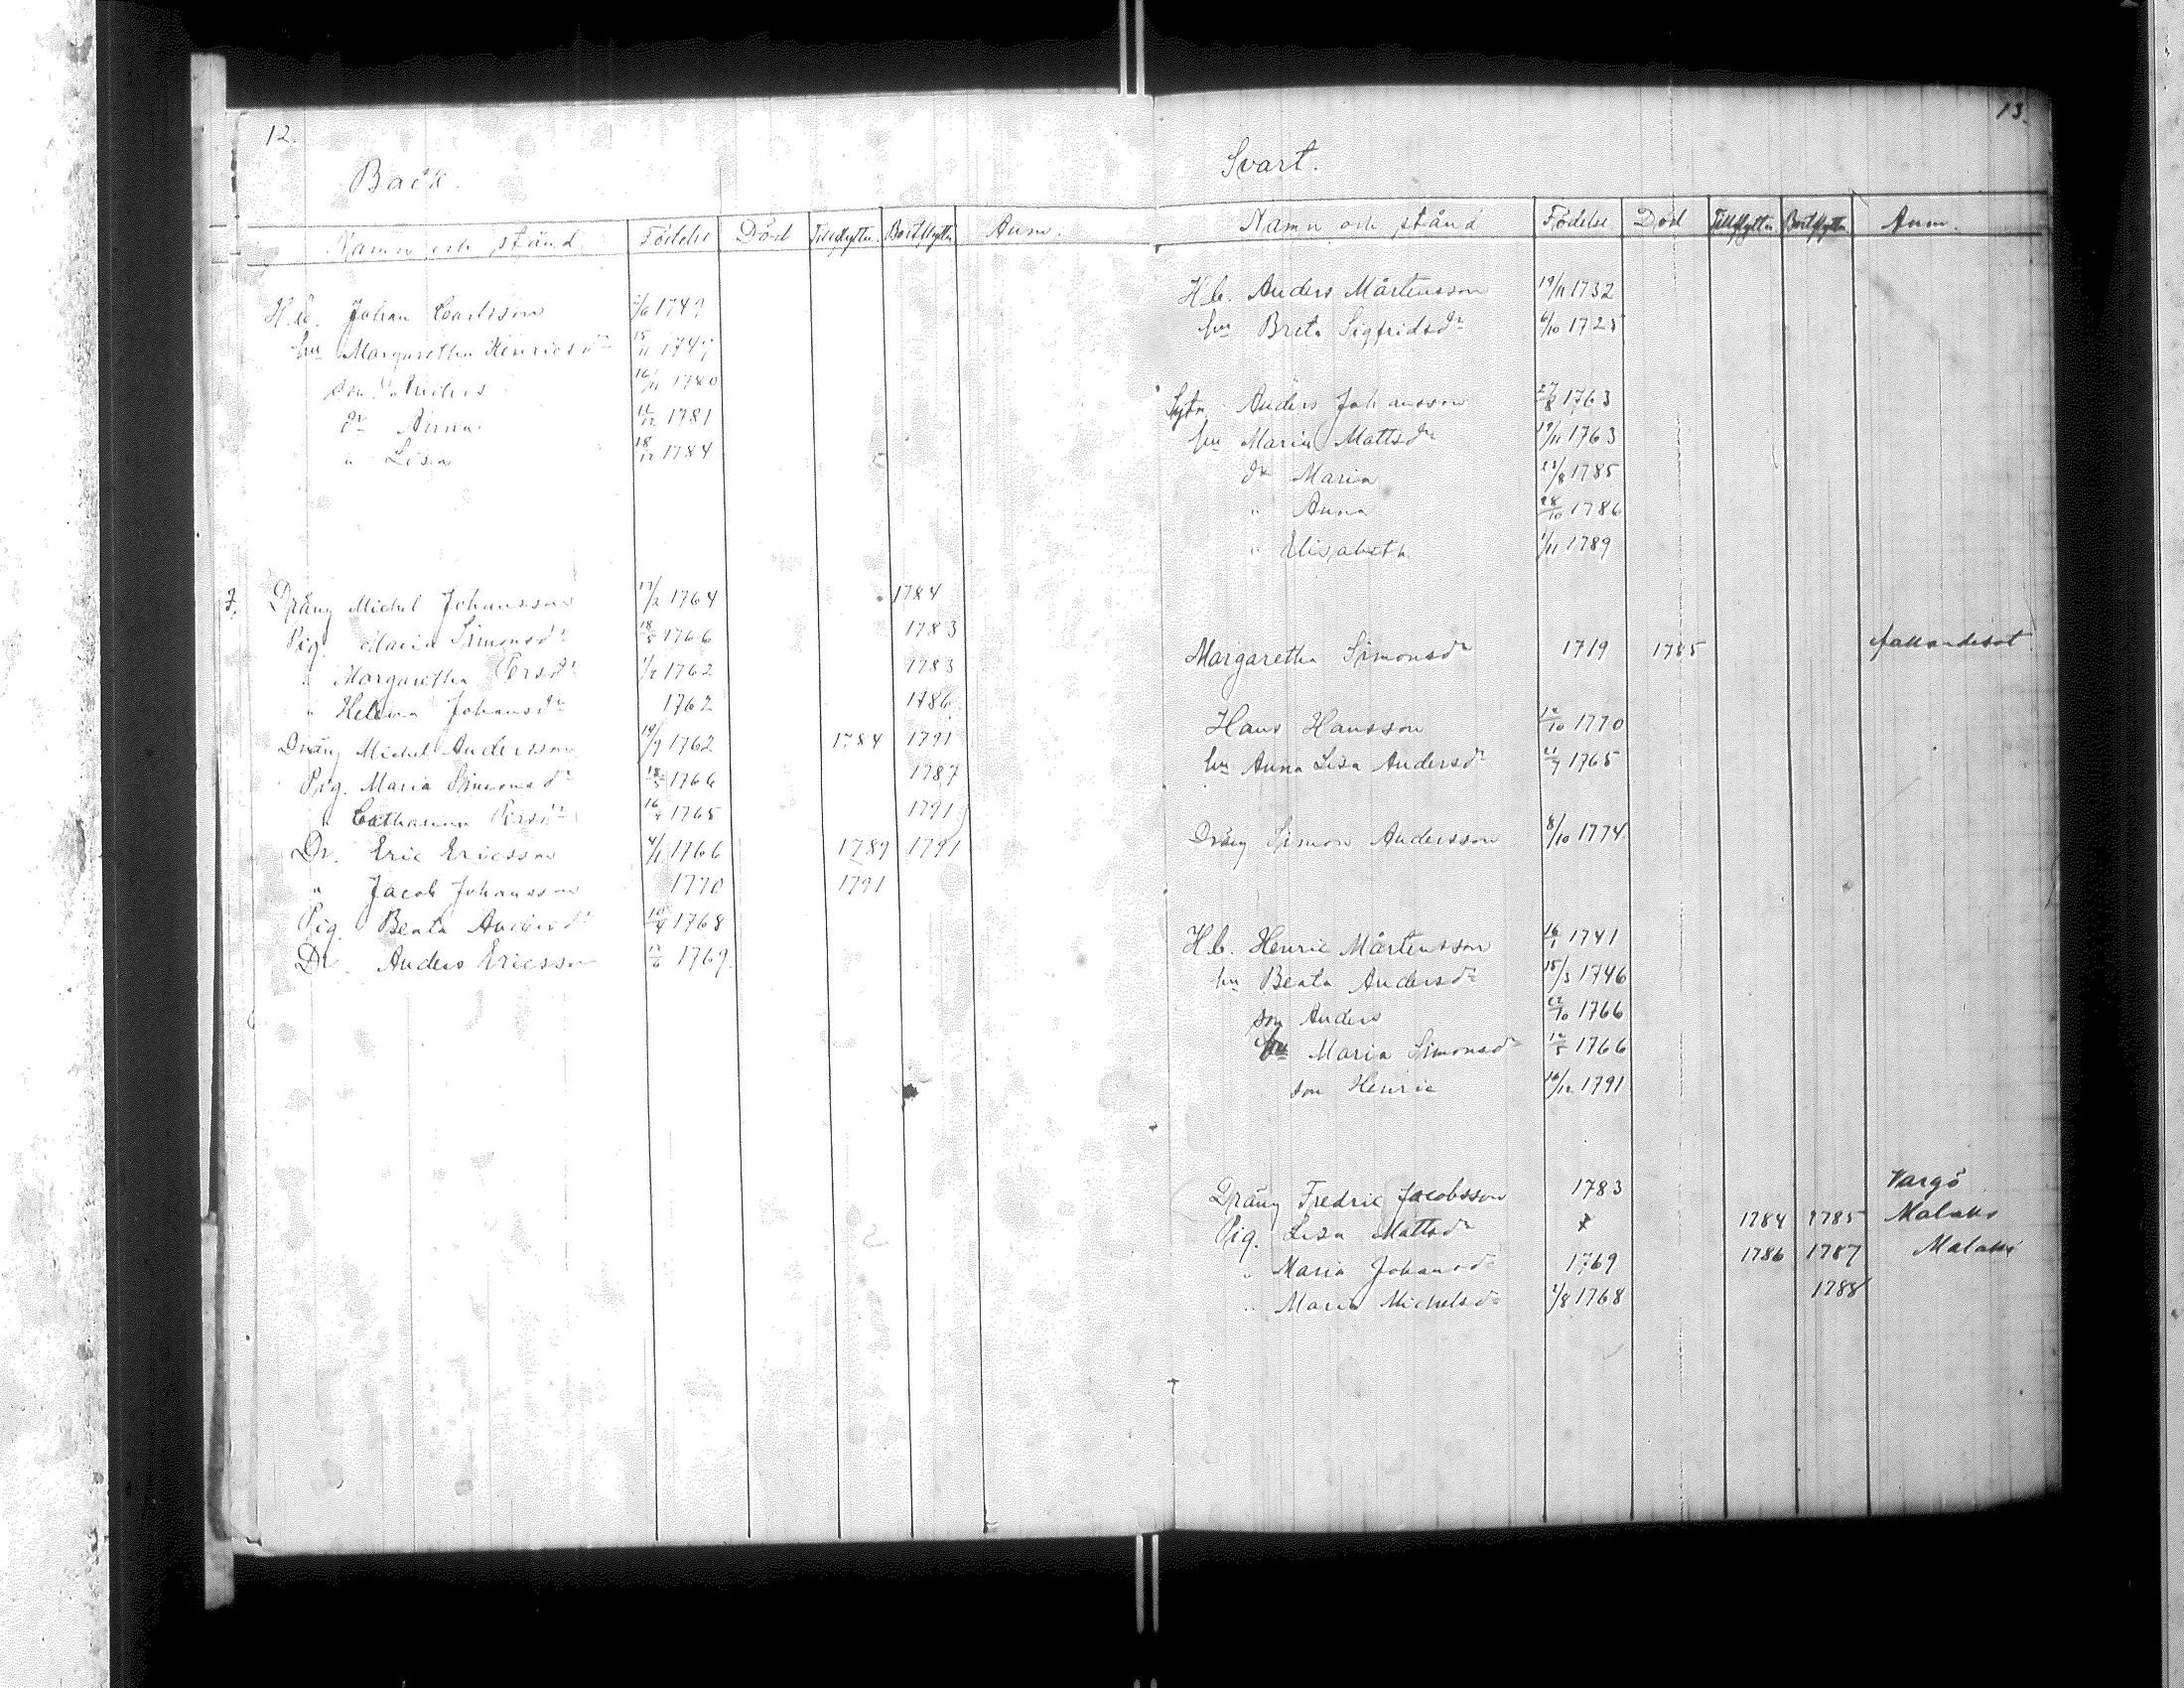 12.
Back.
Namn och stånd Födelse Död Tillflyttn. Bortflyttn. Anm.
H.b. Johan Carlsson 2/6 1749
hu Margaretha Henricsdr 15/11 1747
son Anders 16/11 1780
dr Anna 11/12 1781
" Lisa 18/12 1784
Dräng Michel Johansson 17/2 1764 1784
Pig. Maria Simonsdr 18/5 1766 1783
" Margaretha Persdr 1762 1783
" Helena Johansdr 1762 1786
Dräng Michel Andersson 14/9 1762 1784 1791
Pig. Maria Simonsdr 18/5 1766 1787
" Catharina Persdr 1765 1791
Dr. Eric Ericsson 4/1 1766 1789 1791
" Jacob Johansson 1770 1791
Pig. Beata Andersdr 10/4 1768
Dr. Anders Ericsson 12/6 1769.
13.
Svart.
Namn och stånd Födelse Död Tillflyttn Bortflyttn Anm.
H.b. Anders Mårtensson 19/11 1732
hu Breta Sigfridsdr 6/10 1725
Sytn. Anders Johansson 27/8 1763
hu Maria Mattsdr 19/11 1763
dr Maria 1785
" Anna 28/10 1786
" Elisabeth 1/11 1789
Margaretha Simonsdr 1719 1785 fallandesot
Hans Hansson 12/10 1770
hu Anna Lisa Andersdr 21/7 1765
Dräng Simon Andersson 8/10 1774
H.b. Henric Mårtensson 16/1 1741
hu Beata Andersdr 15/3 1746
son Anders 12/10 1766
hu Maria Simonsdr 12/5 1766
son Henric 16/12 1791
Dräng Fredric Jacobsson 1783 Vargö
Pig. Lisa Mattsdr 1784 1785 Malaks
" Maria Johansdr 1769 1786 1787 Malaks
" Maria Michelsdr 2/8 1768 1788